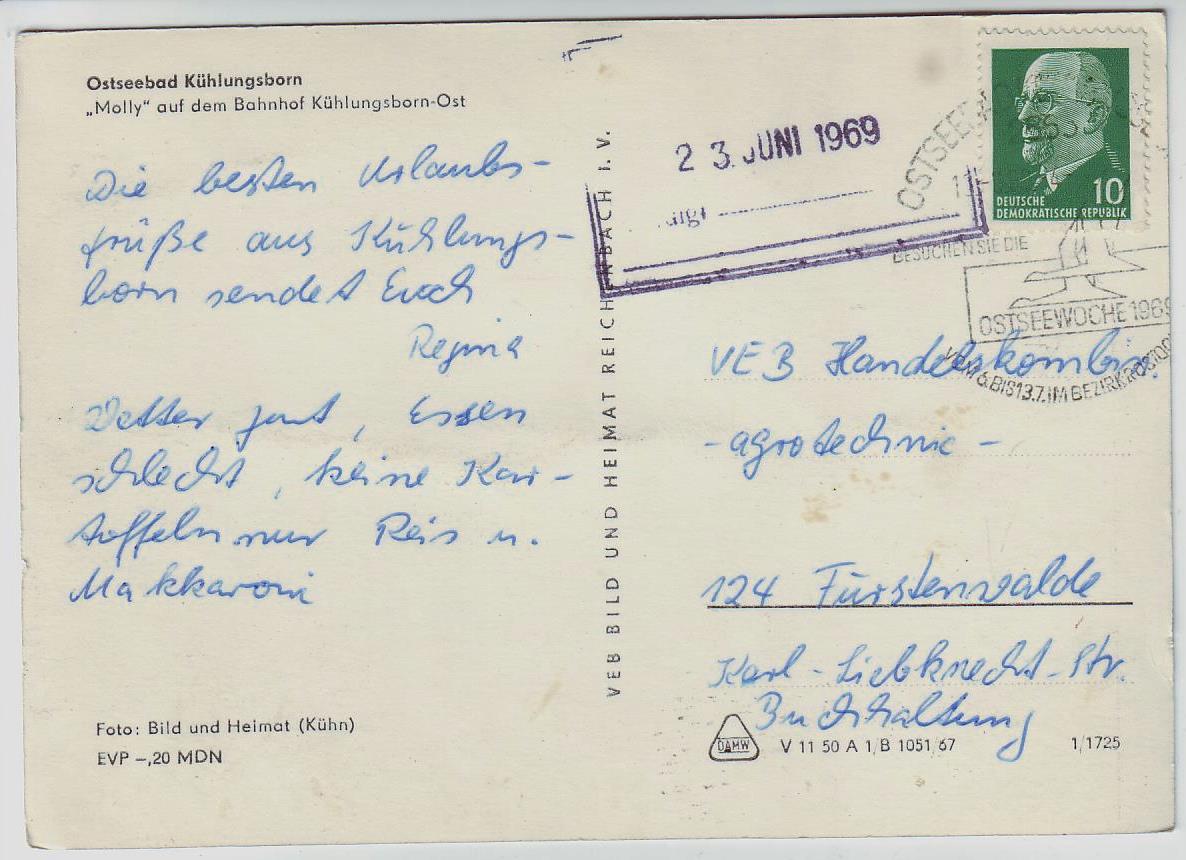 Ostseebad Kühlungsborn
„Molly“ auf dem Bahnhof Kühlungsborn-Ost
Die besten Urlaubs-
grüße aus Kühlungs-
born sendet Euch
Regina
Wetter gut, Essen
schlecht, keine Kar-
toffeln nur Reis u.
Makkaroni
Foto: Bild und Heimat (Kühn)
EVP –,20 MDN
VEB BILD UND HEIMAT REICHENBACH I. V.
23. JUNI 1969
OSTSEEBAD
BESUCHEN SIE DIE
OSTSEEWOCHE 1969
VOM 6.BIS 13.7. IM BEZIRK ROSTOCK
10
DEUTSCHE
DEMOKRATISCHE REPUBLIK
VEB Handelskombin.
- agrotechnic -
124 Fürstenwalde
Karl-Liebknecht-Str.
Buchhaltung
DAMW
V 11 50 A 1/B 1051/67
1/1725